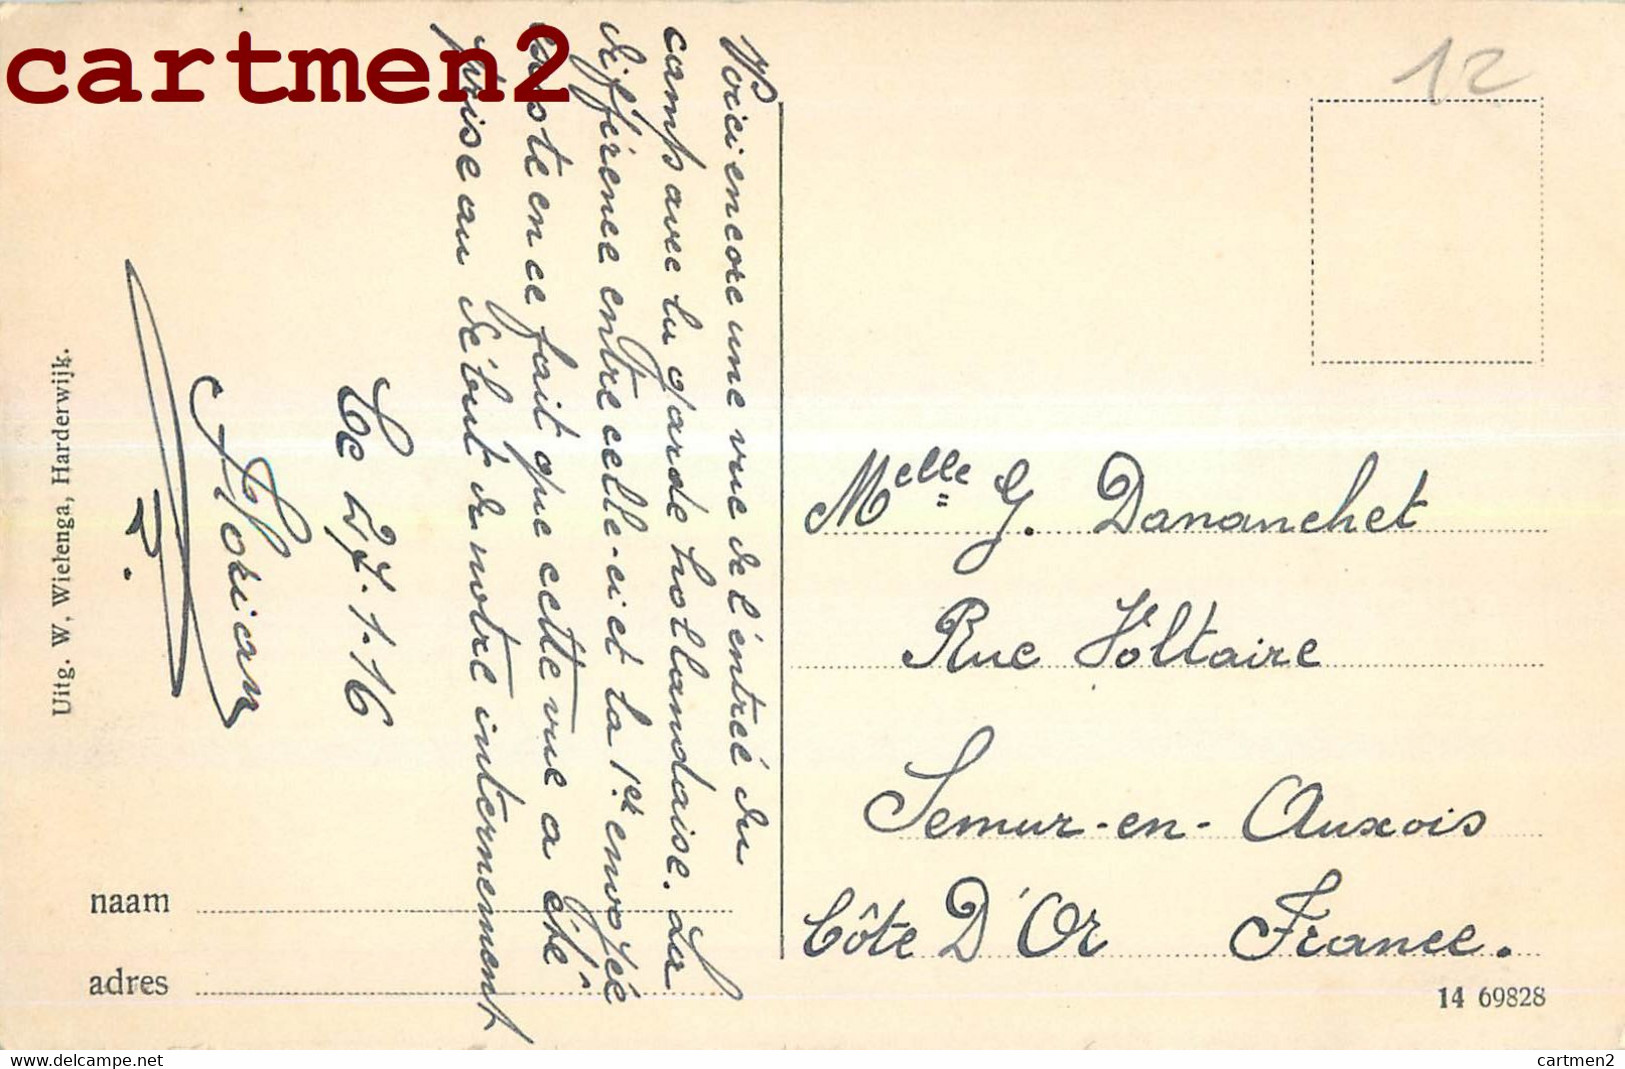 cartmen2
12
Voici encore une vue de l'entrée du
camp avec la garde hollandaise. La
différence entre celle-ci et la 1re envoyée
existe en ce fait que cette vue a été
prise au début de notre internement
Le 27.1.16
Uitg. W. Wielenga, Harderwijk.
naam
adres
Melle G. Dananchet
Rue Voltaire
Semur-en-Auxois
Côte D'Or France.
14 69828
cartmen2-delcampe.net
cartmen2